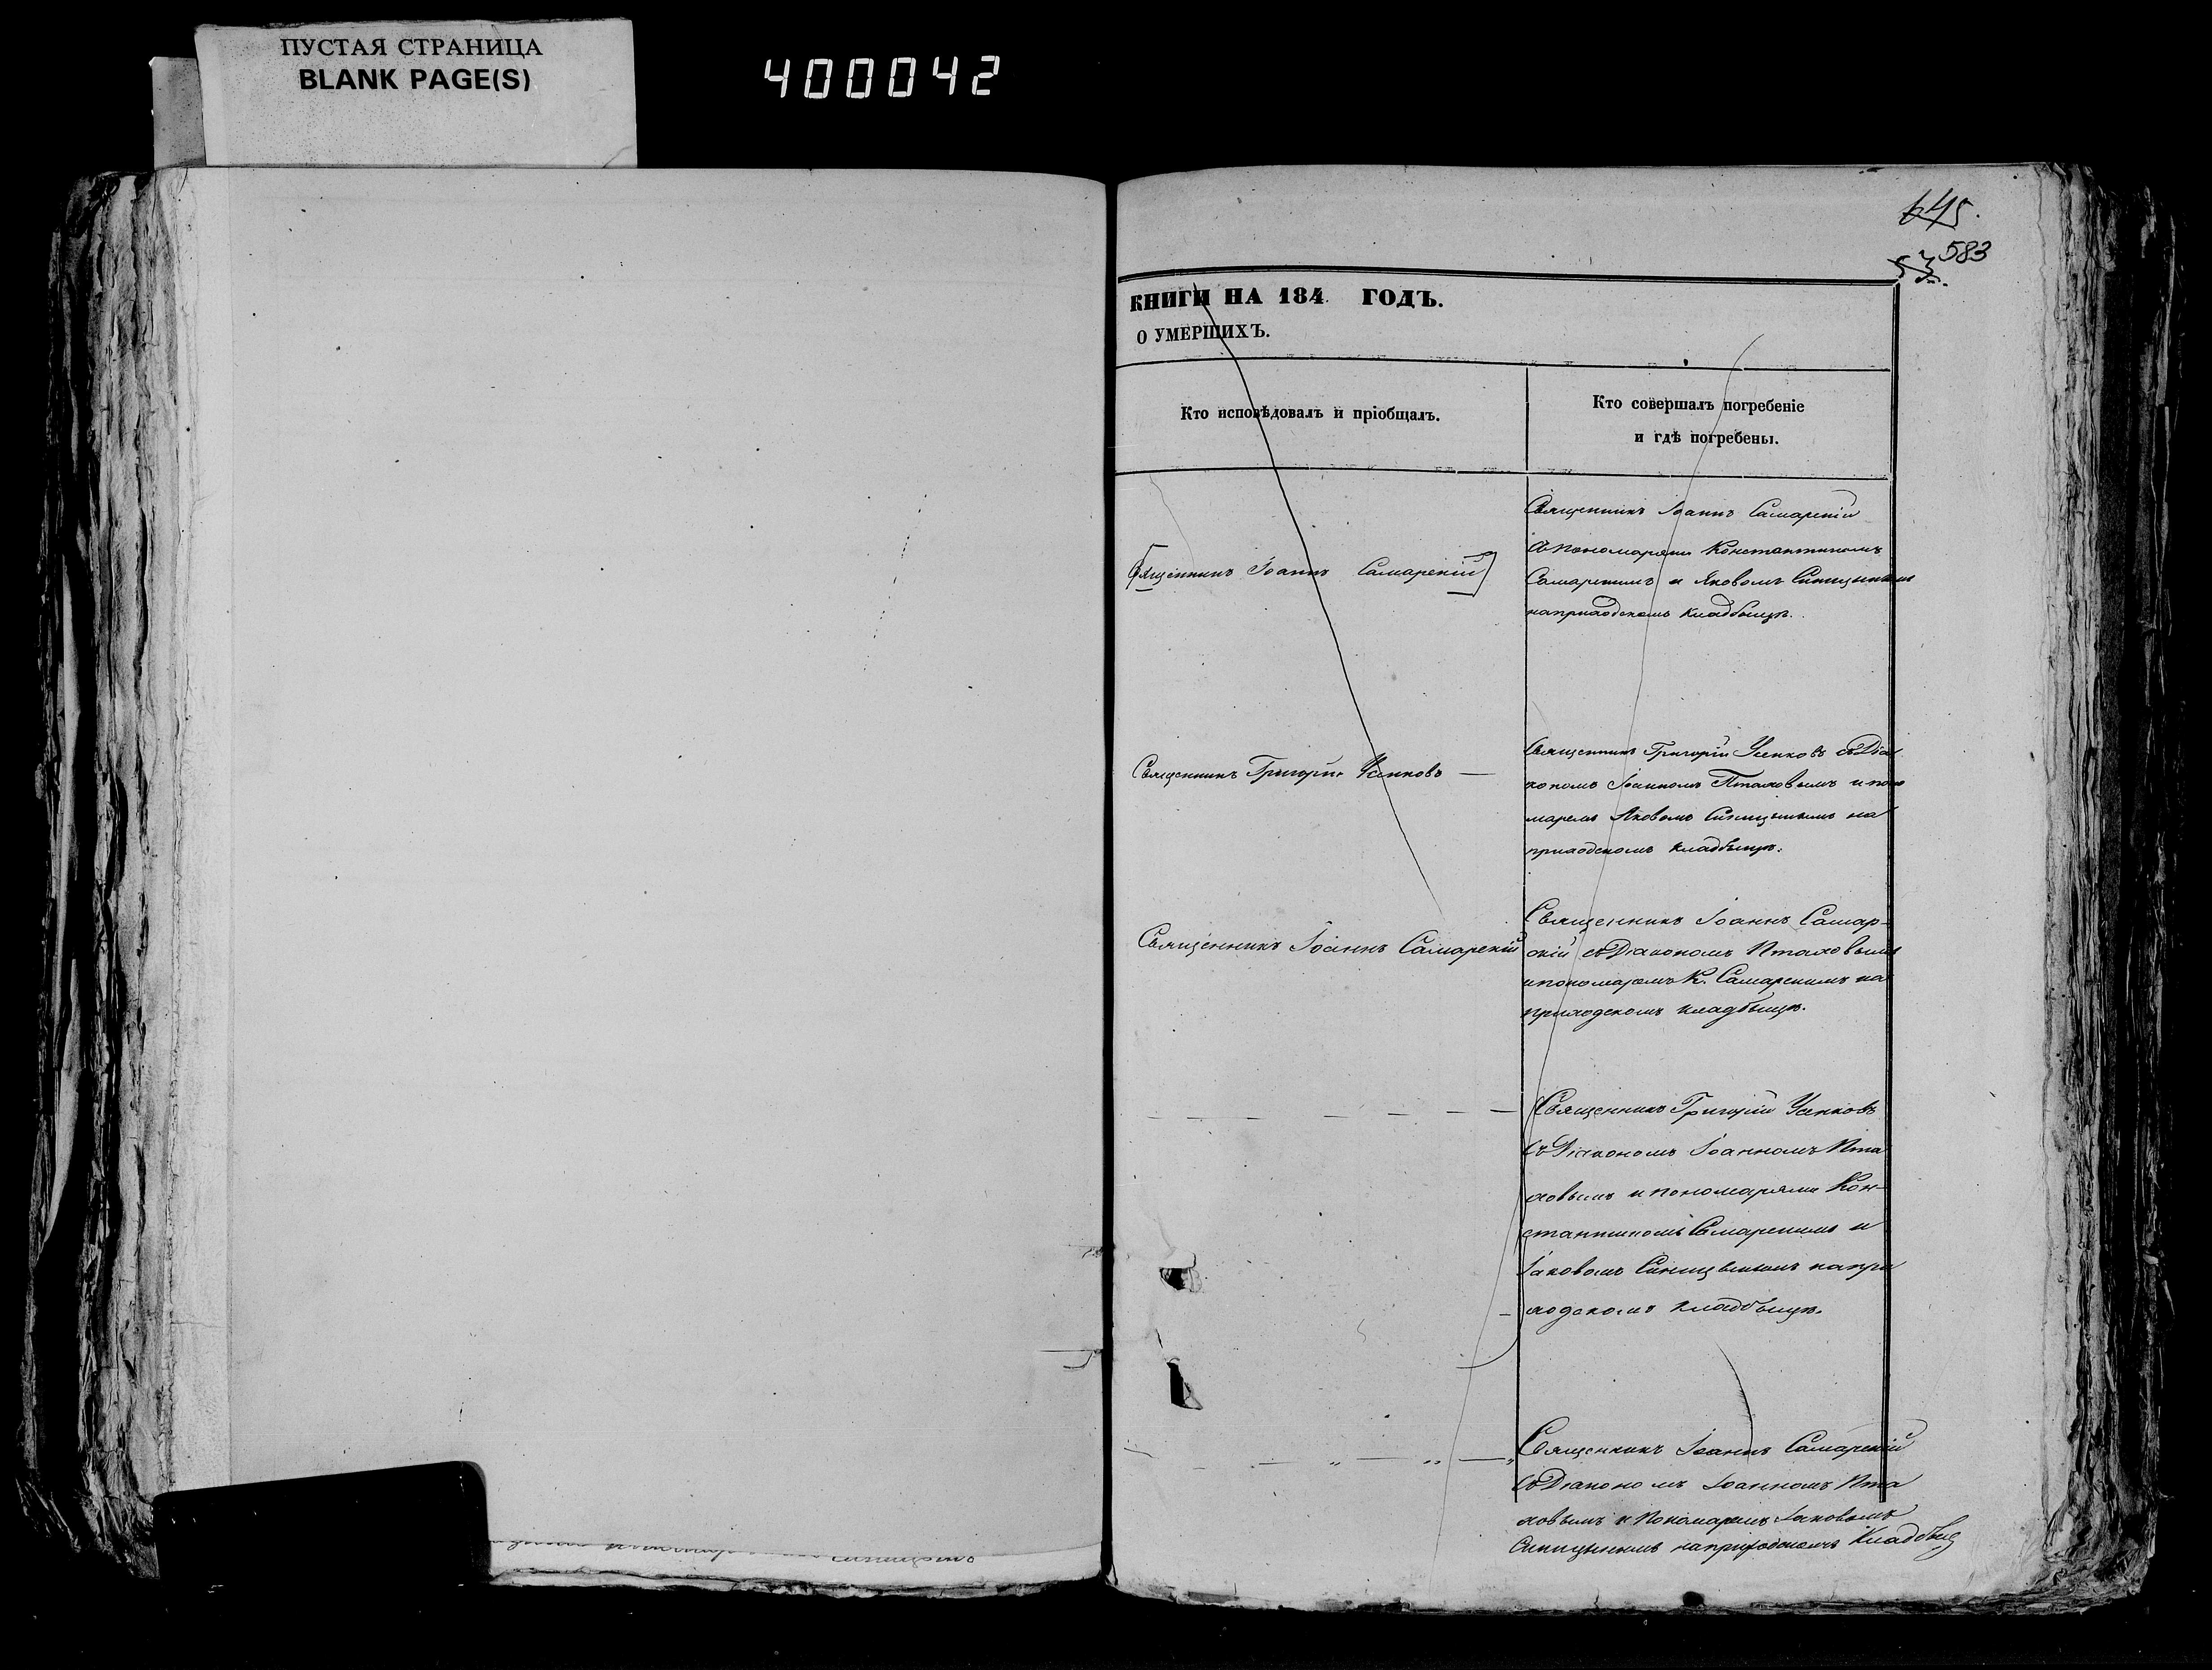 ПУСТАЯ СТРАНИЦА
BLANK PAGE(S)
400042
645.
583
53.
КНИГИ НА 184 ГОДЪ.
О УМЕРШИХЪ.
Кто исповѣдовалъ и пріобщалъ.
Кто совершалъ погребеніе
и гдѣ погребены.
Священникъ Іоаннъ Самарскій
Священникъ Іоаннъ Самарскій
съ пономарями Константиномъ
Самарскимъ и Яковомъ Синицынымъ
на приходскомъ кладбыщѣ.
Священникъ Григорій Усенковъ
Священникъ Григорій Усенковъ съ Діа
кономъ Іоанномъ Птаховымъ и поно
маремъ Яковомъ Синицынымъ на
приходскомъ кладбыщѣ.
Священникъ Іоаннъ Самарскій
Священникъ Іоаннъ Самар-
скій съ Діакономъ Птаховымъ
и пономаремъ К. Самарскимъ на
приходскомъ кладбыщѣ.
Священникъ Григорій Усенковъ
съ Діакономъ Іоанномъ Пта
ховымъ и пономарями Кон-
стантиномъ Самарскимъ и
Іаковомъ Синицынымъ на при
ходскомъ кладбыщѣ.
Священникъ Іоаннъ Самарскій
съ Діакономъ Іоанномъ Пта
ховымъ и Пономаремъ Іаковомъ
Синицынымъ на приходскомъ Кладбыщ